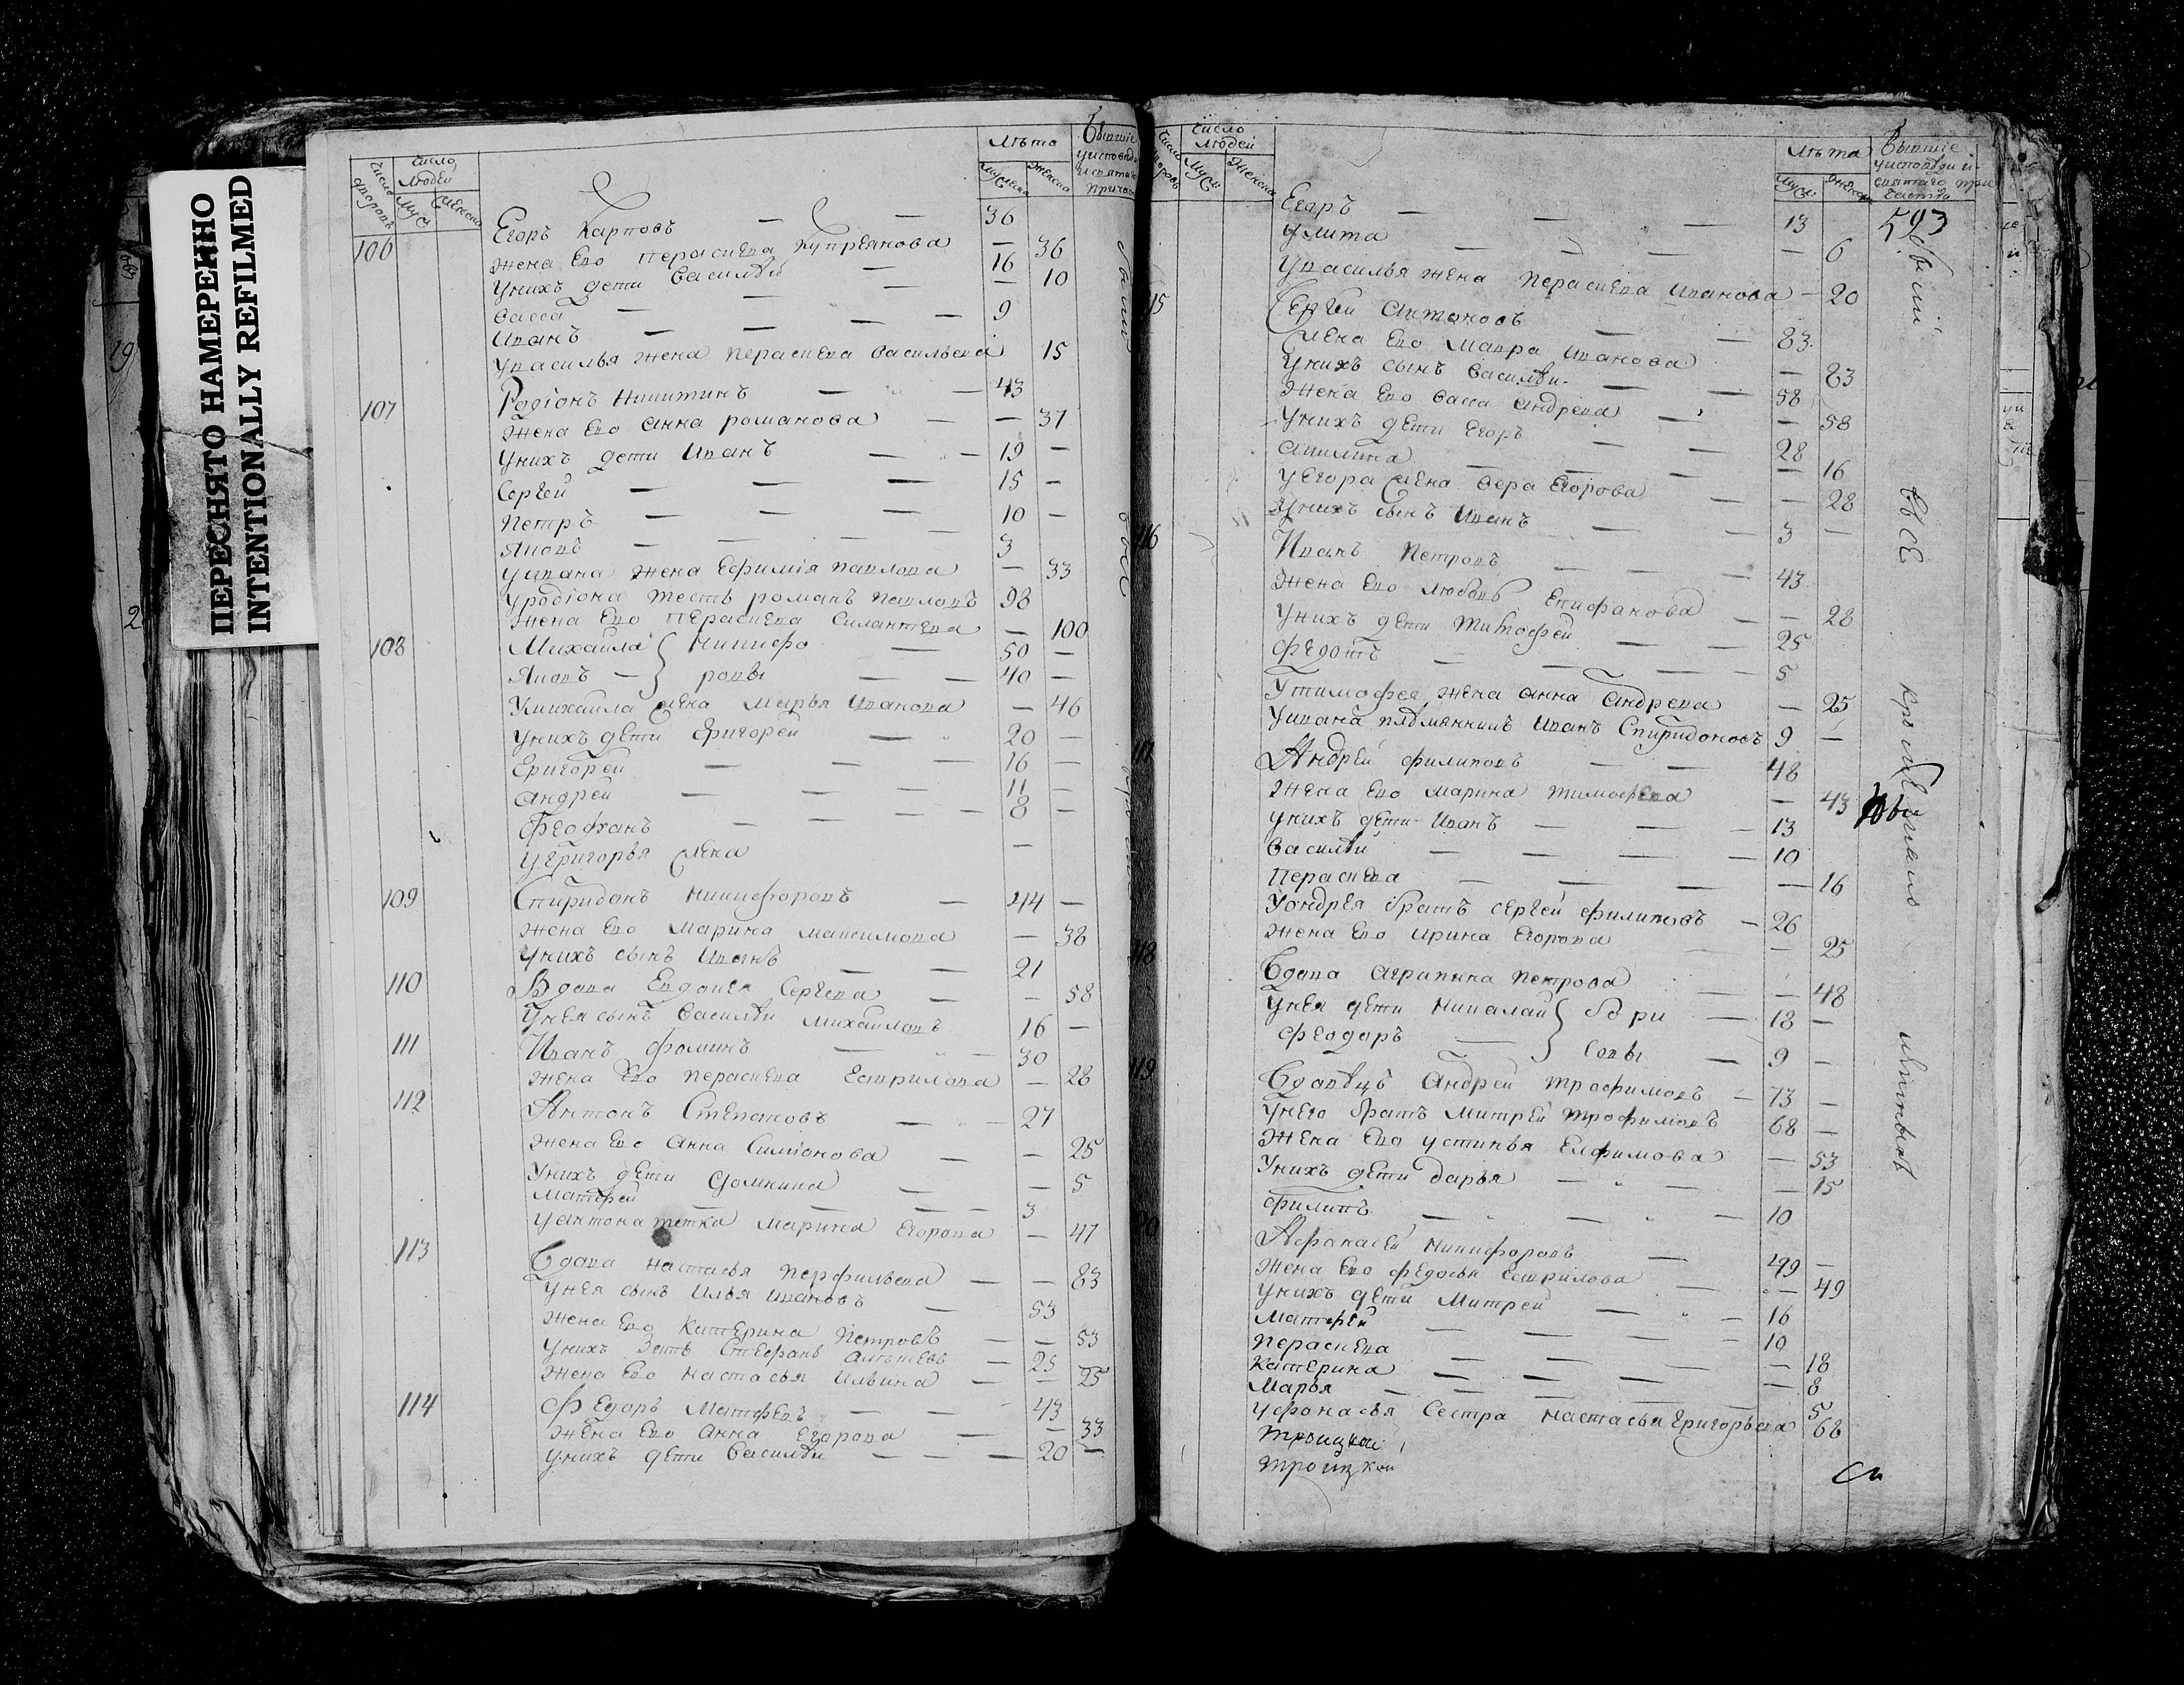 ПЕРЕСНЯТО НАМЕРЕННО
INTENTIONALLY REFILMED
Число дворовъ
Число людей
Муж
Женска
Лѣта
Мужска
Женска
Бывшіе
106 Егоръ Карповъ — — 36
жена Ево Пераскева Купреянова — 36
у нихъ дети Василѣй — 16
Васса — — — 10
Иванъ — — — 9
у василья жена Пераскева Васильева 15
107 Родіонъ Никитинъ — — 43
жена Ево анна романова — — 37
у нихъ дети Иванъ — — 19 —
Сергей — — — 15 —
Петръ — — — 10 —
Яковъ — — — 3
у ивана жена Ефимія павлова — 33
у родіона тесть романъ павловъ 98
жена Ево Пераскева Силантева — 100
108 Михаила } Никифо — 50 —
Яковъ — } ровы — — 40 —
у михаила жена марья Иванова — 46
у нихъ дети Григорей — 20 —
Григорей — — — 16 —
андрей — — — 11 —
Феофанъ — — — 8 —
у григорья жена —
109 Спиридонъ никифоровъ — 44 —
жена Ево марина максимова — 38
у нихъ сынъ Иванъ — — 21
110 Вдова Евдокея Сергева — — 58
у нея сынъ Василѣй михаиловъ 16 —
111 Иванъ фоминъ — — 30
жена Ево пераскева Гаврилова — 28
112 Антонъ Степановъ — — 27
жена Ево анна Симіонова — — 25
у нихъ дети Домкина — — 5
матфей — — — 3
у антона тетка марина Егорова — 47
113 Вдова настасья перфильева — — 83
у нея сынъ Илья Ивановъ — 53
жена Ево Катерина Петровъ — — 53
у нихъ зеть Стефанъ — 25
жена Ево настасья Ильина — — 25
114 Федоръ Матфевъ — — 43
жена Ево анна Егорова — — 33
у нихъ дети Василѣй — — — 20 —
Число людей
Муж
Женска
Лѣта
Муж
Женск
Бывшіе
у исповѣди и
святаго при
частія
593
Егоръ — — — 13
улита — — — 6
у василья жена пераскева Иванова — 20
15 Сергей антоновъ — — 83
жена Ево мавра Иванова — 83
у нихъ сынъ Василѣи — — 58
жена Ево васса андрева — — 58
у нихъ дети Егоръ — — 28
акилина — — — 16
у Егора жена вера Егорова — — 28
у нихъ сынъ Иванъ — — 3 —
16 Иванъ Петровъ — — — 43
жена Ево любовъ Епифанова — — 28
у нихъ дети Тимофей — — 25
федотъ — — — 5
у тимофея жена анна андрева — 25
у ивана Иванъ Спиридоновъ 9 —
117 Андрей филиповъ — — 48
жена Ево марина тимофева — 43
у нихъ дети Иванъ — — — 13
василѣй — — — — 10
пераскева — — — — 16
у андрея братъ сергей филиповъ — 26
жена Ево ирина Егорова — 25
118 Вдова агрипина петрова — 48
у нея дети николай } бори — 18 —
феодоръ — } совы — 9 —
119 Вдовецъ андрей трофимовъ — 73 —
у него братъ митрей трофимовъ 68 —
жена Ево устинья Ефимова — 53
у нихъ дети дарья — — — 15
филипъ — — — 10
Афанасей никифоровъ — 49 —
жена Ево федосья Гаврилова — 49
у нихъ дети митрей — — 16
матфей — — — 10
пераскева — — — 18
катерина — — — 8
марья — — — 5
у афонасья сестра настасья григорьева 68
троицкой
троицкой